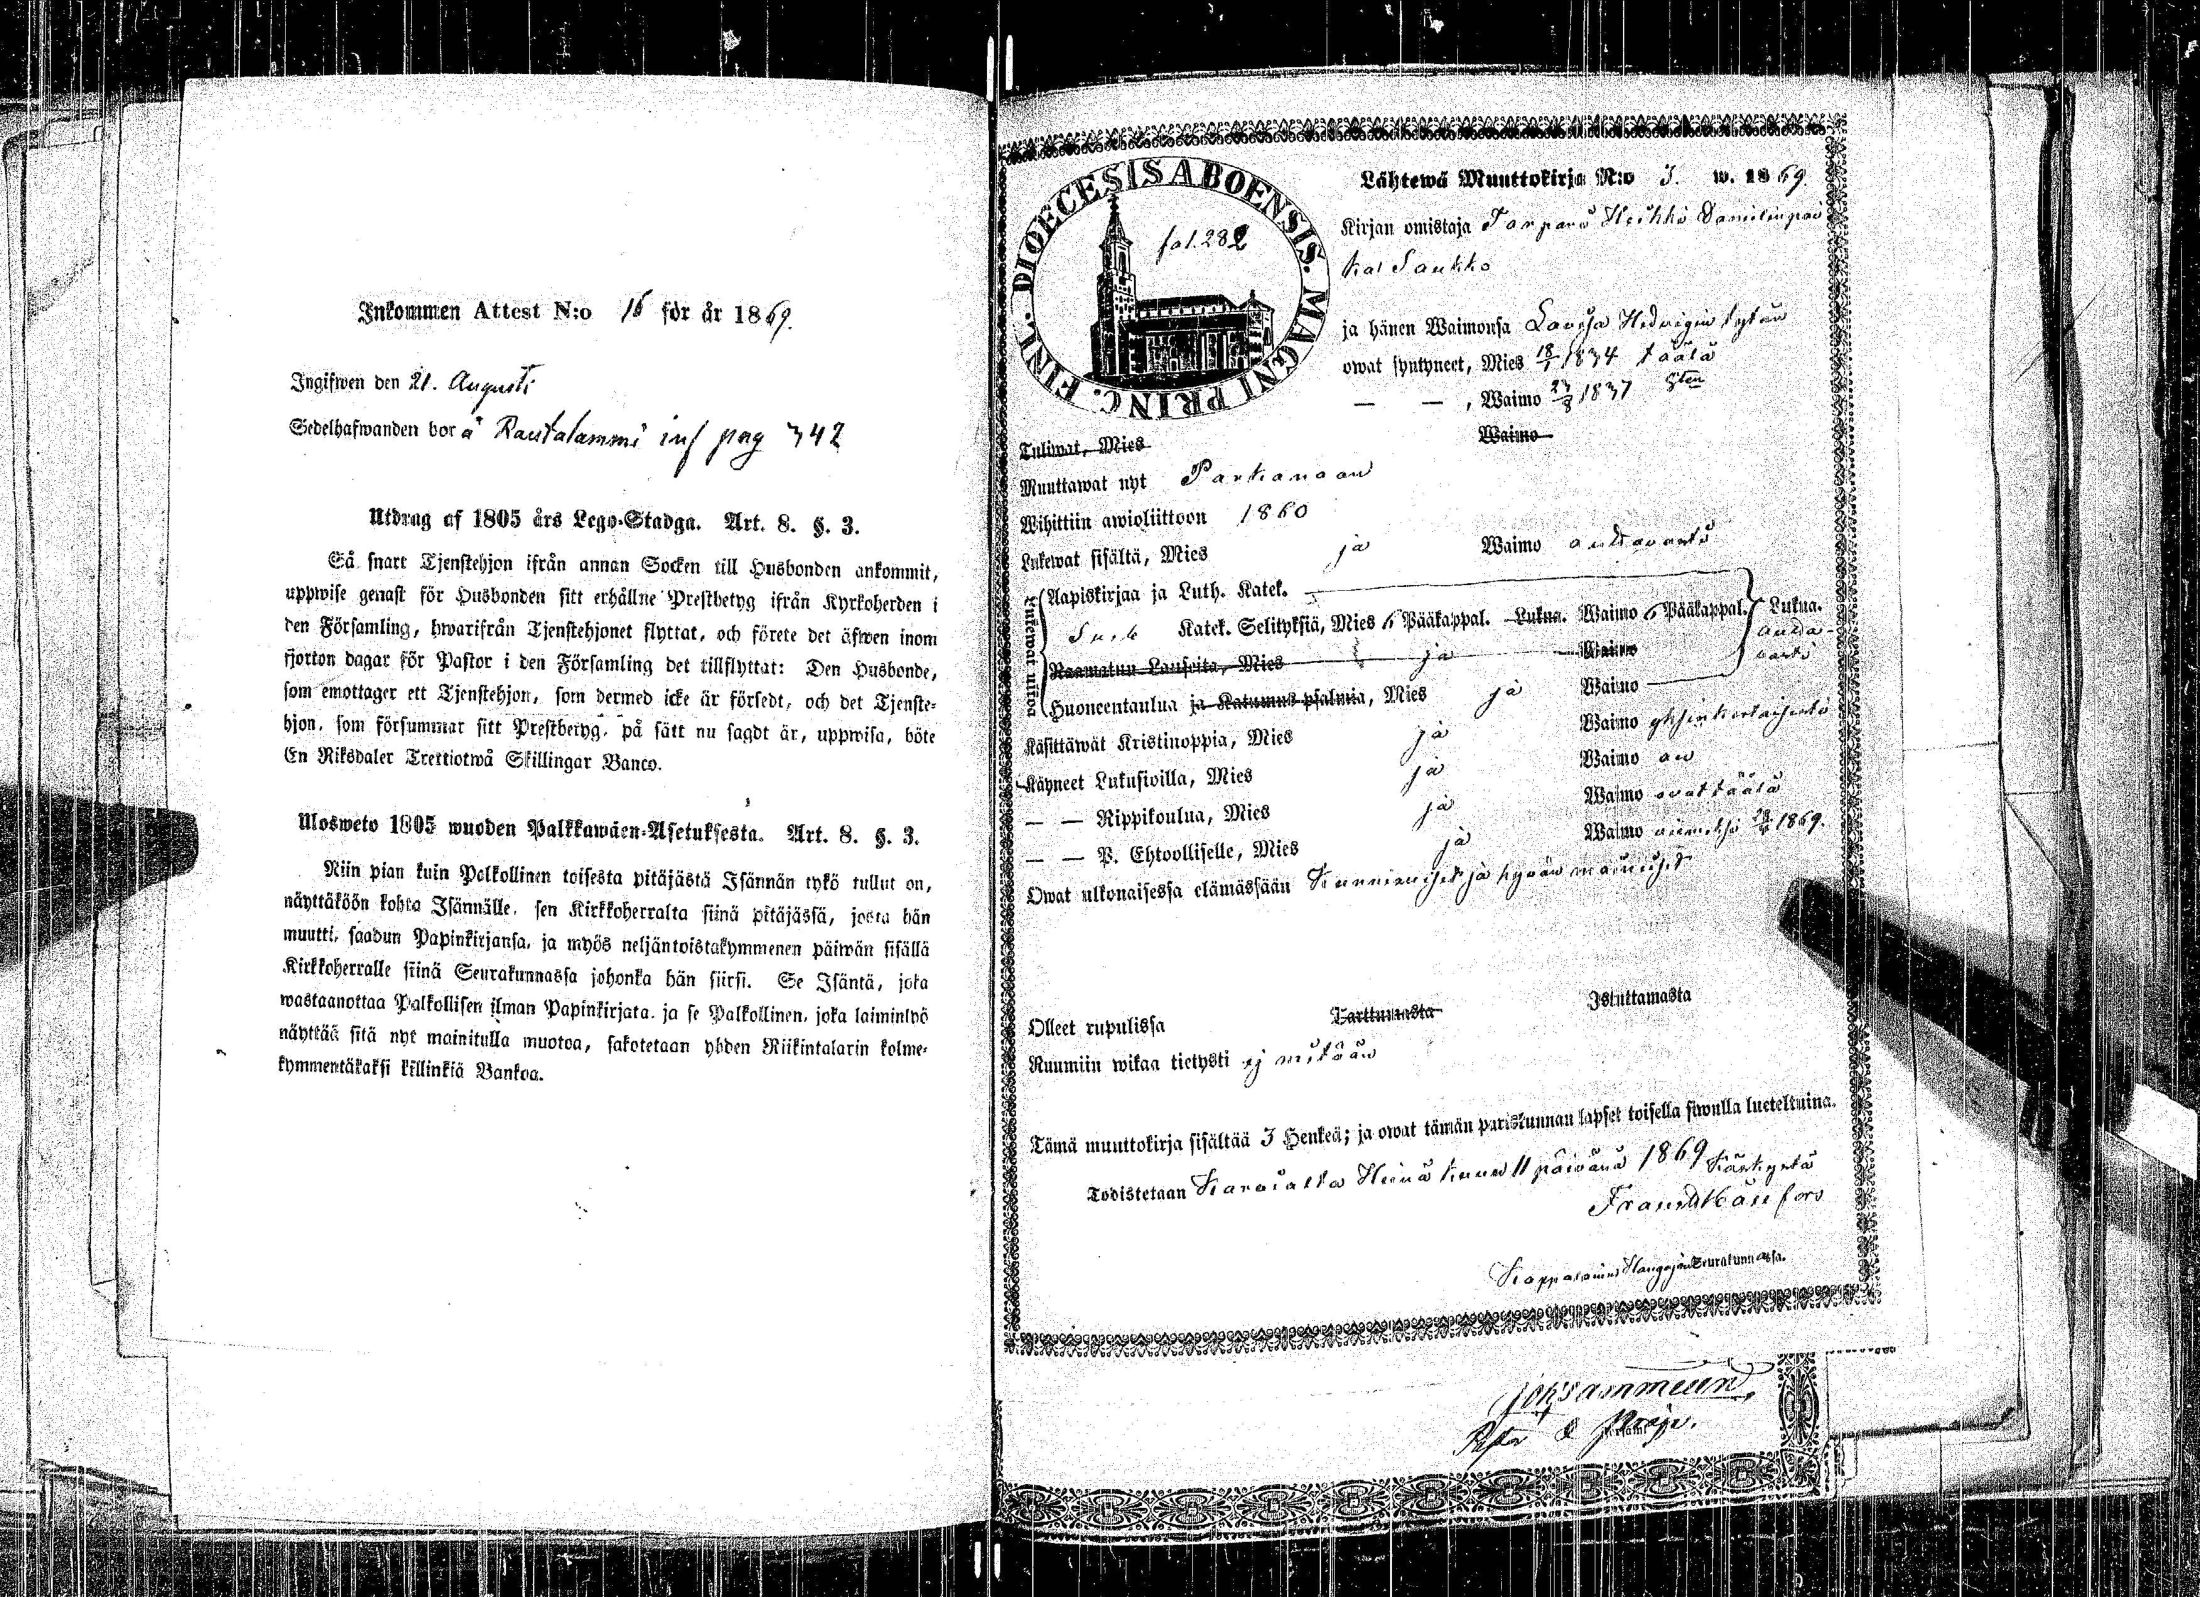 Inkommen Attest N:o 16 för år 1869.
Ingifwen den 21. Augusti
Sedelhafwanden bor å Rautalammi inh pag 342
Utdrag af 1805 års Lego-Stadga. Art. 8. §. 3.
Så snart Tjenstehjon ifrån annan Socken till Husbonden ankommit,
uppwise genast för Husbonden sitt erhållne Prestbetyg ifrån Kyrkoherden i
den Församling, hwarifrån Tjenstehjonet flyttat, och förete det äfwen inom
fjorton dagar för Pastor i den Församling det tillflyttat: Den Husbonde,
som emottager ett Tjenstehjon, som dermed icke är försedt, och det Tjenste-
hjon, som försummar sitt Prestbetyg, på sätt nu sagdt är, uppwisa, böte
En Riksdaler Trettiotwå Skillingar Banco.
Ulosweto 1805 wuoden Palkkawäen-Asetuksesta. Art. 8. §. 3.
Niin pian kuin Palkollinen toisesta pitäjästä Isännän tykö tullut on,
näyttäköön kohta Isännälle, sen Kirkkoherralta siinä pitäjässä, josta hän
muutti, saadun Papinkirjansa, ja myös neljäntoistakymmenen päiwän sisällä
Kirkkoherralle siinä Seurakunnassa johonka hän siirsi. Se Isäntä, joka
wastaanottaa Palkollisen ilman Papinkirjata, ja se Palkollinen, joka laiminlyö
näyttää sitä nyt mainitulla muotoa, sakotetaan yhden Riikintalarin kolme-
kymmentäkaksi killinkiä Bankoa.
DIOECESIS ABOENSIS. MAGNI PRINC. FINL.
fol. 282
Lähtewä Muuttokirja N:o 3. w. 1869.
Kirjan omistaja Torpari Heikki Danielinpoi
ka Saukko
ja hänen Waimonsa Lovisa Hedvigin tytär
owat syntyneet, Mies 18/1 1834 täälä
— — , Waimo 23/8 1837 8ten
Tuliwat, Mies Waimo
Muuttawat nyt Parkanoon
Wihittiin awioliittoon 1860
Lukewat sisältä, Mies ja Waimo auttavasti
Aapiskirjaa ja Luth. Katek.
Katek. Selityksiä, Mies 6 Pääkappal. Lukua. Waimo 6 Pääkappal. Lukua.
Raamatun Lauseita, Mies ja Waimo
Huoneentaulua ja Katumus-psalmia, Mies ja Waimo
Käsittäwät Kristinoppia, Mies ja Waimo yksinkertaisesti
Käyneet Lukusioilla, Mies ja Waimo on
— — Rippikoulua, Mies ja Waimo ovat täälä
— — P. Ehtoolliselle, Mies ja Waimo viimeksi 1869.
Owat ulkonaisessa elämässään Kunnianiset ja hyvän mainiset
Olleet rupulissa Tarttumasta Istuttamasta
Ruumiin wikaa tietysti ej mitään
Tämä muuttokirja sisältää 3 Henkeä; ja owat tämän pariskunnan lapset toisella siwulla lueteltuina.
Todistetaan Karvialla Heinä kuun 11 päivänä 1869 Käskystä
Seurakunnassa.